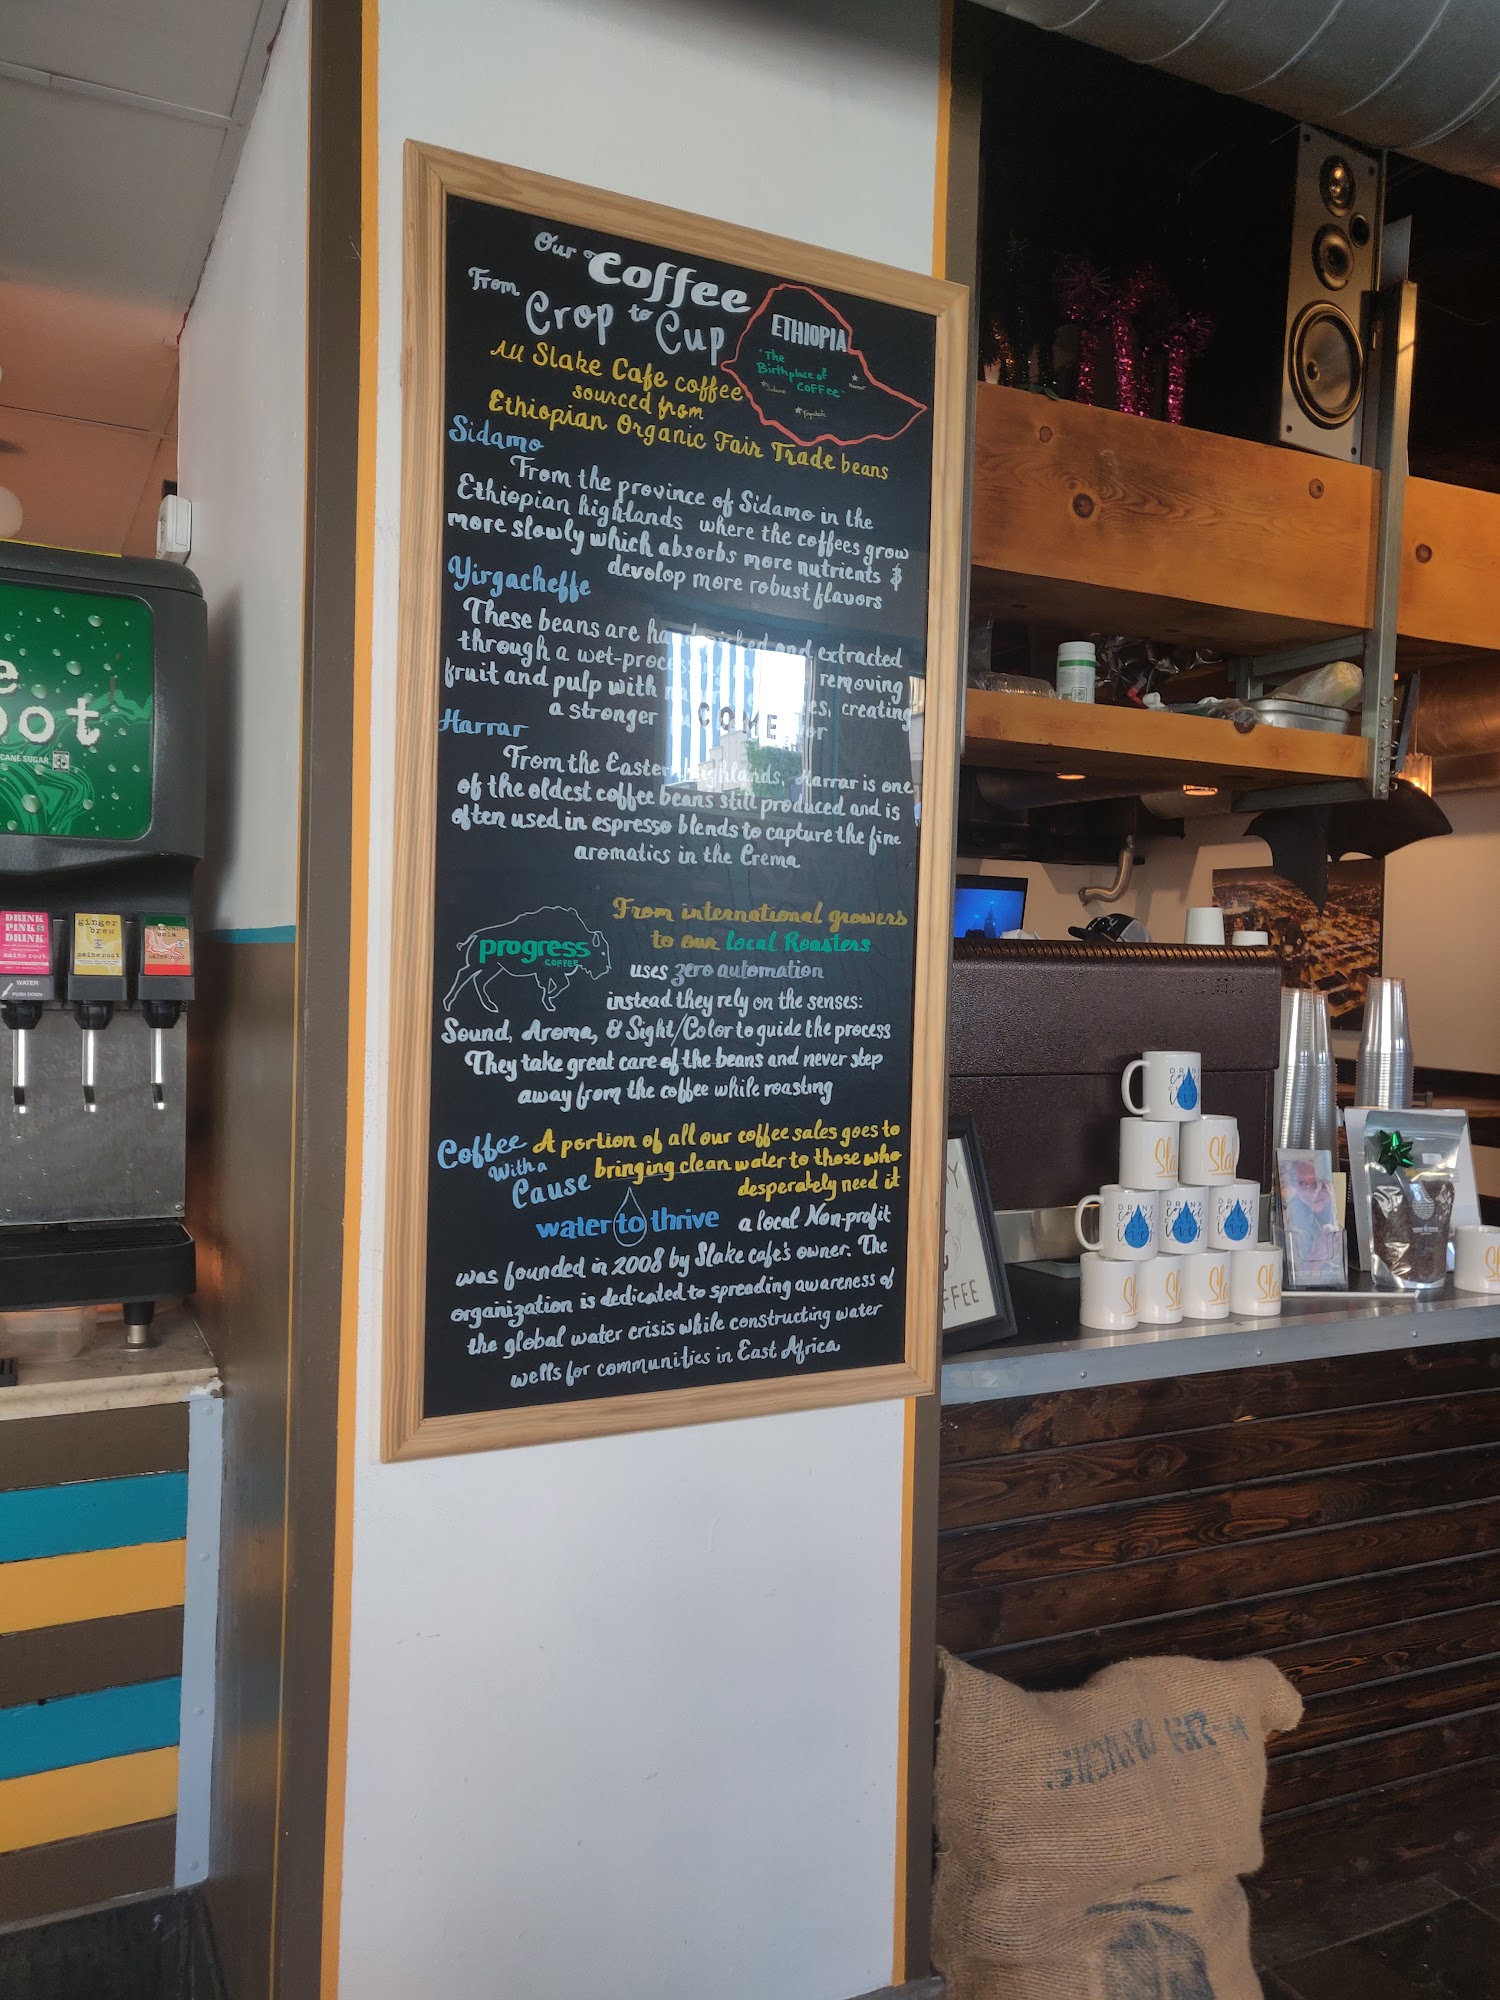 Our Coffee
From Crop to Cup
ETHIOPIA
"The
Birthplace of
COFFEE"
All Slake Cafe coffee
sourced from
Ethiopian Organic Fair Trade beans
Sidamo
From the province of Sidamo in the
Ethiopian highlands where the coffees grow
more slowly which absorbs more nutrients &
devolop more robust flavors
Yirgacheffe
These beans are and extracted
through a wet-processing removing
fruit and pulp with creating
a stronger
Harrar
From the Eastern highlands, Harrar is one
of the oldest coffee beans still produced and is
often used in espresso blends to capture the fine
aromatics in the Crema
progress
COFFEE
From international growers
to our local Roasters
uses zero automation
instead they rely on the senses:
Sound, Aroma, & Sight/Color to guide the process
They take great care of the beans and never step
away from the coffee while roasting
Coffee
With a
Cause
A portion of all our coffee sales goes to
bringing clean water to those who
desperately need it
water to thrive a local Non-profit
was founded in 2008 by Slake cafe's owner. The
organization is dedicated to spreading awareness of
the global water crisis while constructing water
wells for communities in East Africa
COME
CANE SUGAR
DRINK
PINK
DRINK
maine root
ginger
brew
maine root
maine root
WATER
PUSH DOWN
DRINK
DRINK
DRINK
DRINK
Sla
Sla
Sla
Sla
COFFEE